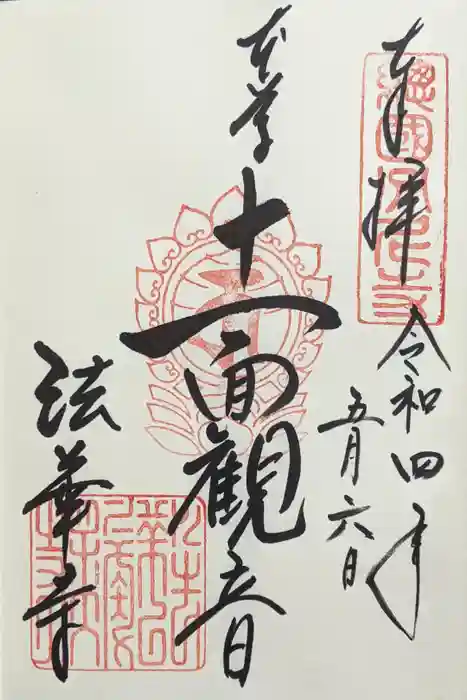 奉拝
令和四年
五月六日
本尊
十一面観音
法華寺